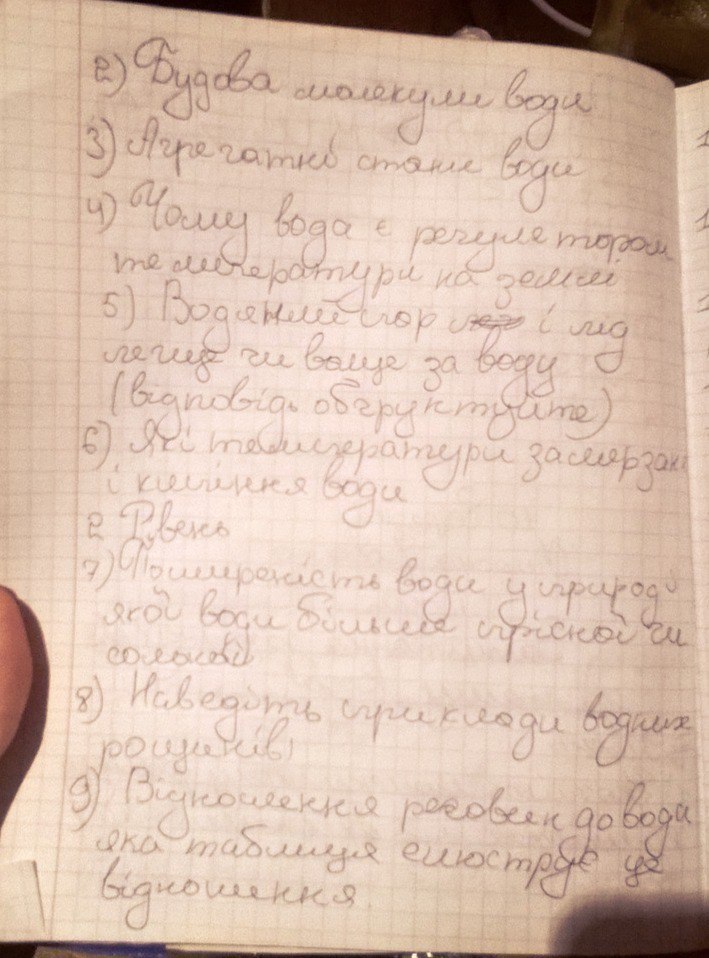 2) Будова молекули води
3) Агрегатні стани води
4) Чому вода є регулятором
температури на землі
5) Водяний пар і лід
легше чи важче за воду
(відповідь обгрунтуйте)
6) Які температури замерзан
і кипіння води
2 Рівень
7) Поширеність води у природі
якої води більше прісної чи
солоної
8) Наведіть приклади водних
розчинів
9) Відношення речовин до води
яка таблиця ілюструє це
відношення.